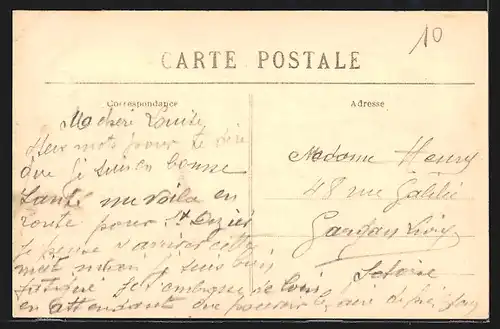 10
CARTE POSTALE
Correspondance
Adresse
Ma chere Louise
deux mots pour te dire
que je suis en bonne
santé me voila en
route pour St Dizier
je pense y arriver
matin je suis bien
fatigué je t'embrasse de loin
en attendant que pouvoir le
Madame Henry
48 rue Galilée
Gargan Livry